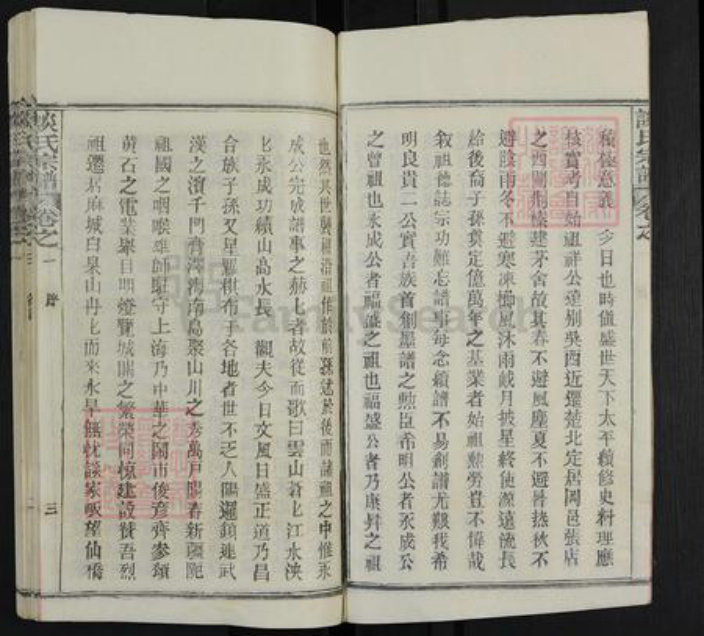 談氏宗譜 卷之一
積德意義 今日也時值盛世天下太平續修史料理應
核實考自始祖祥公達別吳西近遷楚北定居岡邑張店
之西開荊榛建茅舍故其春不避風塵夏不避暑熱秋不
避陰雨冬不避寒凍櫛風沐雨戴月披星終使源遠流長
給後裔子孫奠定億萬年之基業者始祖勲勞豈不偉哉
敘祖德誌宗功難忘譜事每念續譜不易創譜尤艱我希
明良貴二公實吾族首創墨譜之勲臣希明公者永成公
之曾祖也永成公者福盛之祖也福盛公者乃庚舜之祖
也然其世襲相沿祖作於前孫述於後而諸祖之中惟永
成公完成譜事之赫匕者故從而歌曰雲山蒼匕江水泱
匕永成功績山高水長 觀夫今日文風日盛正道乃昌
合族子孫又星羅棋布于各地者世不乏人陽邏鎮連武
漢之濱千門齊海南島聚山川之秀萬戶陽春新疆陀
祖國之咽喉雄師駐守上海乃中華之鬧市俊彥齊參頌
黃石之電業舉目明燈覽城關之繁榮同惊建設贊吾烈
祖遷居麻城白臬山冉匕而來永旱無忧談家畈望仙橋
談氏宗譜 卷之一 序 三